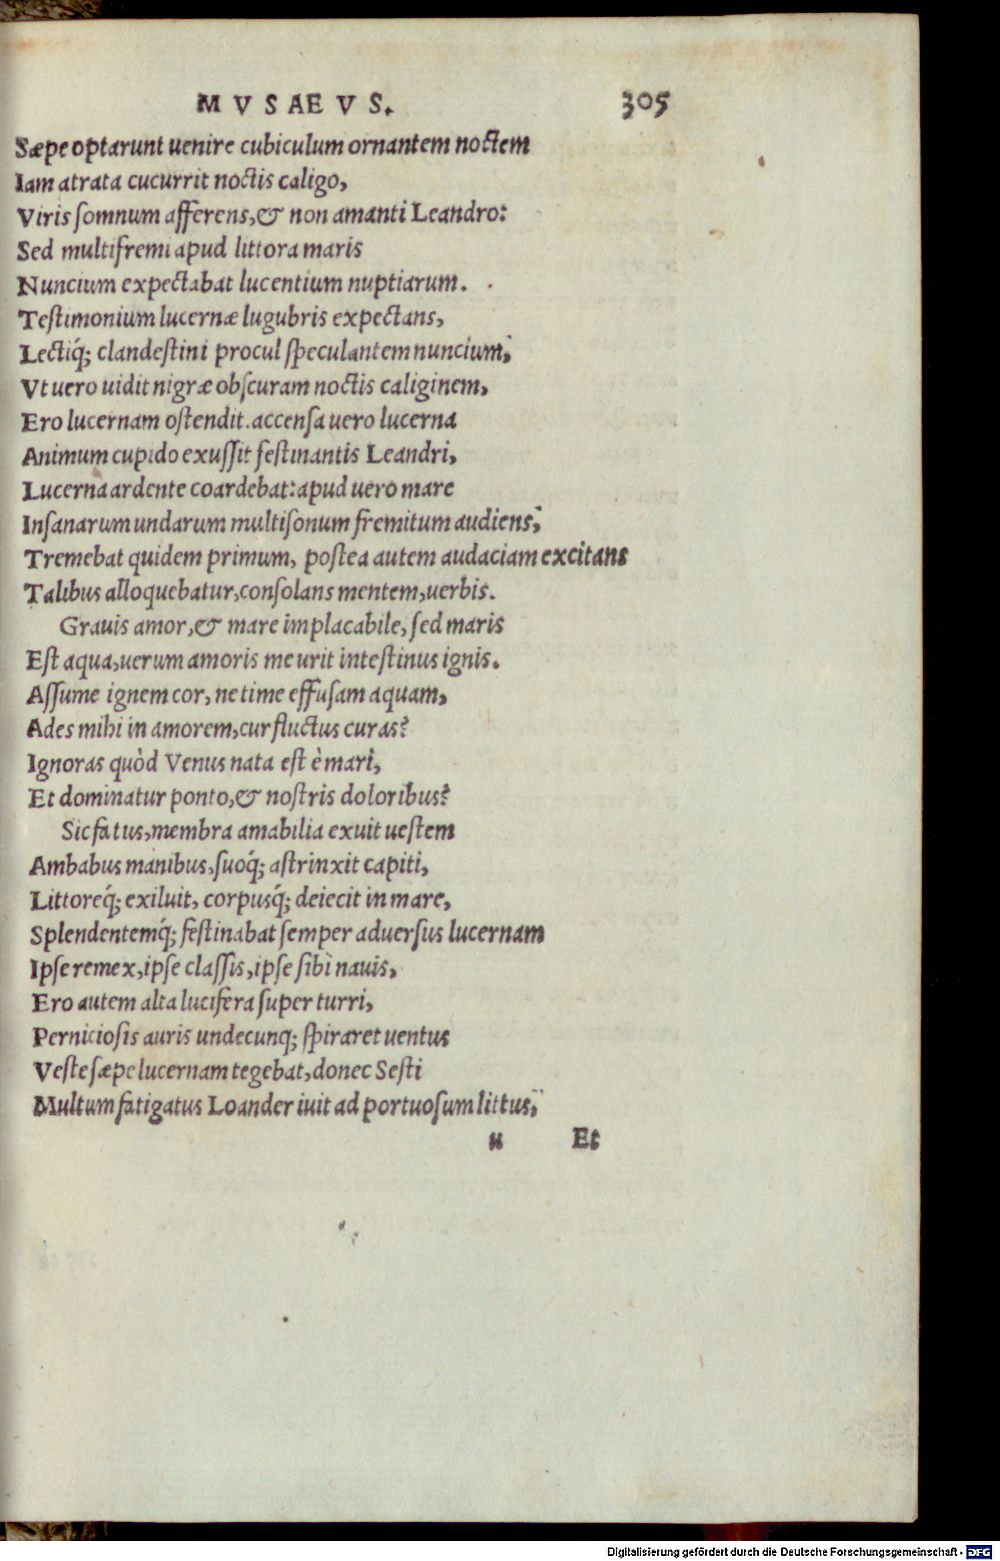 MVSAEVS. 305
Sæpe optarunt uenire cubiculum ornantem noctem
Iam atrata cucurrit noctis caligo,
Viris ſomnum afferens,& non amanti Leandro:
Sed multifremi apud littora maris
Nuncium expectabat lucentium nuptiarum.
Teſtimonium lucernæ lugubris expectans,
Lectiq́; clandeſtini procul ſpeculantem nuncium;
Vt uero uidit nigræ obſcuram noctis caliginem,
Ero lucernam oſtendit.accenſa uero lucerna
Animum cupido exuſſit feſtinantis Leandri,
Lucerna ardente coardebat:apud uero mare
Inſanarum undarum multiſonum fremitum audiens;
Tremebat quidem primum, poſtea autem audaciam excitans
Talibus alloquebatur,conſolans mentem,uerbis.
Grauis amor,& mare implacabile,ſed maris
Eſt aqua,uerum amoris me urit inteſtinus ignis.
Aſſume ignem cor, ne time effuſam aquam,
Ades mihi in amorem,cur fluctus curas?
Ignoras quòd Venus nata eſt è mari,
Et dominatur ponto,& noſtris doloribus?
Sic fatus,membra amabilia exuit ueſtem
Ambabus manibus,ſuoq́; aſtrinxit capiti,
Littoreq́; exiluit, corpusq́; deiecit in mare,
Splendentemq́; feſtinabat ſemper aduerſus lucernam
Ipſe remex,ipſe claſſis,ipſe ſibi nauis,
Ero autem alta lucifera ſuper turri,
Pernicioſis auris undecunq; ſpiraret uentus
Veſte ſæpe lucernam tegebat,donec Seſti
Multum fatigatus Loander iuit ad portuoſum littus;
u Et
Digitalisierung gefördert durch die Deutsche Forschungsgemeinschaft - DFG